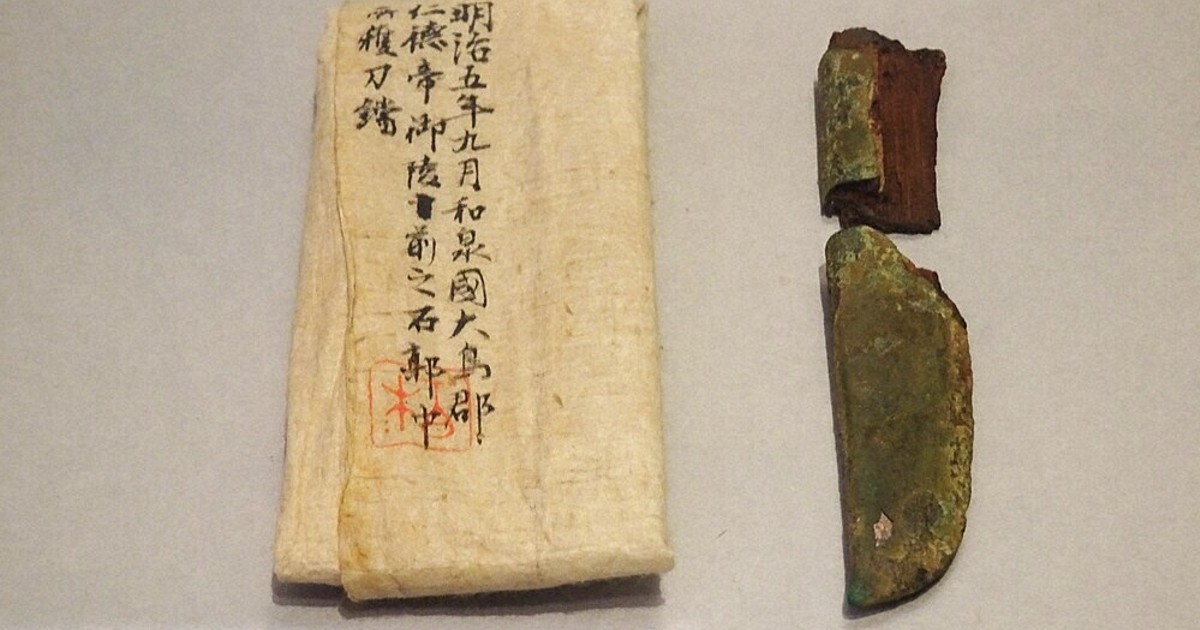 明治五年九月和泉國大鳥郡
仁德帝御陵前之石郭中
所獲刀鐺